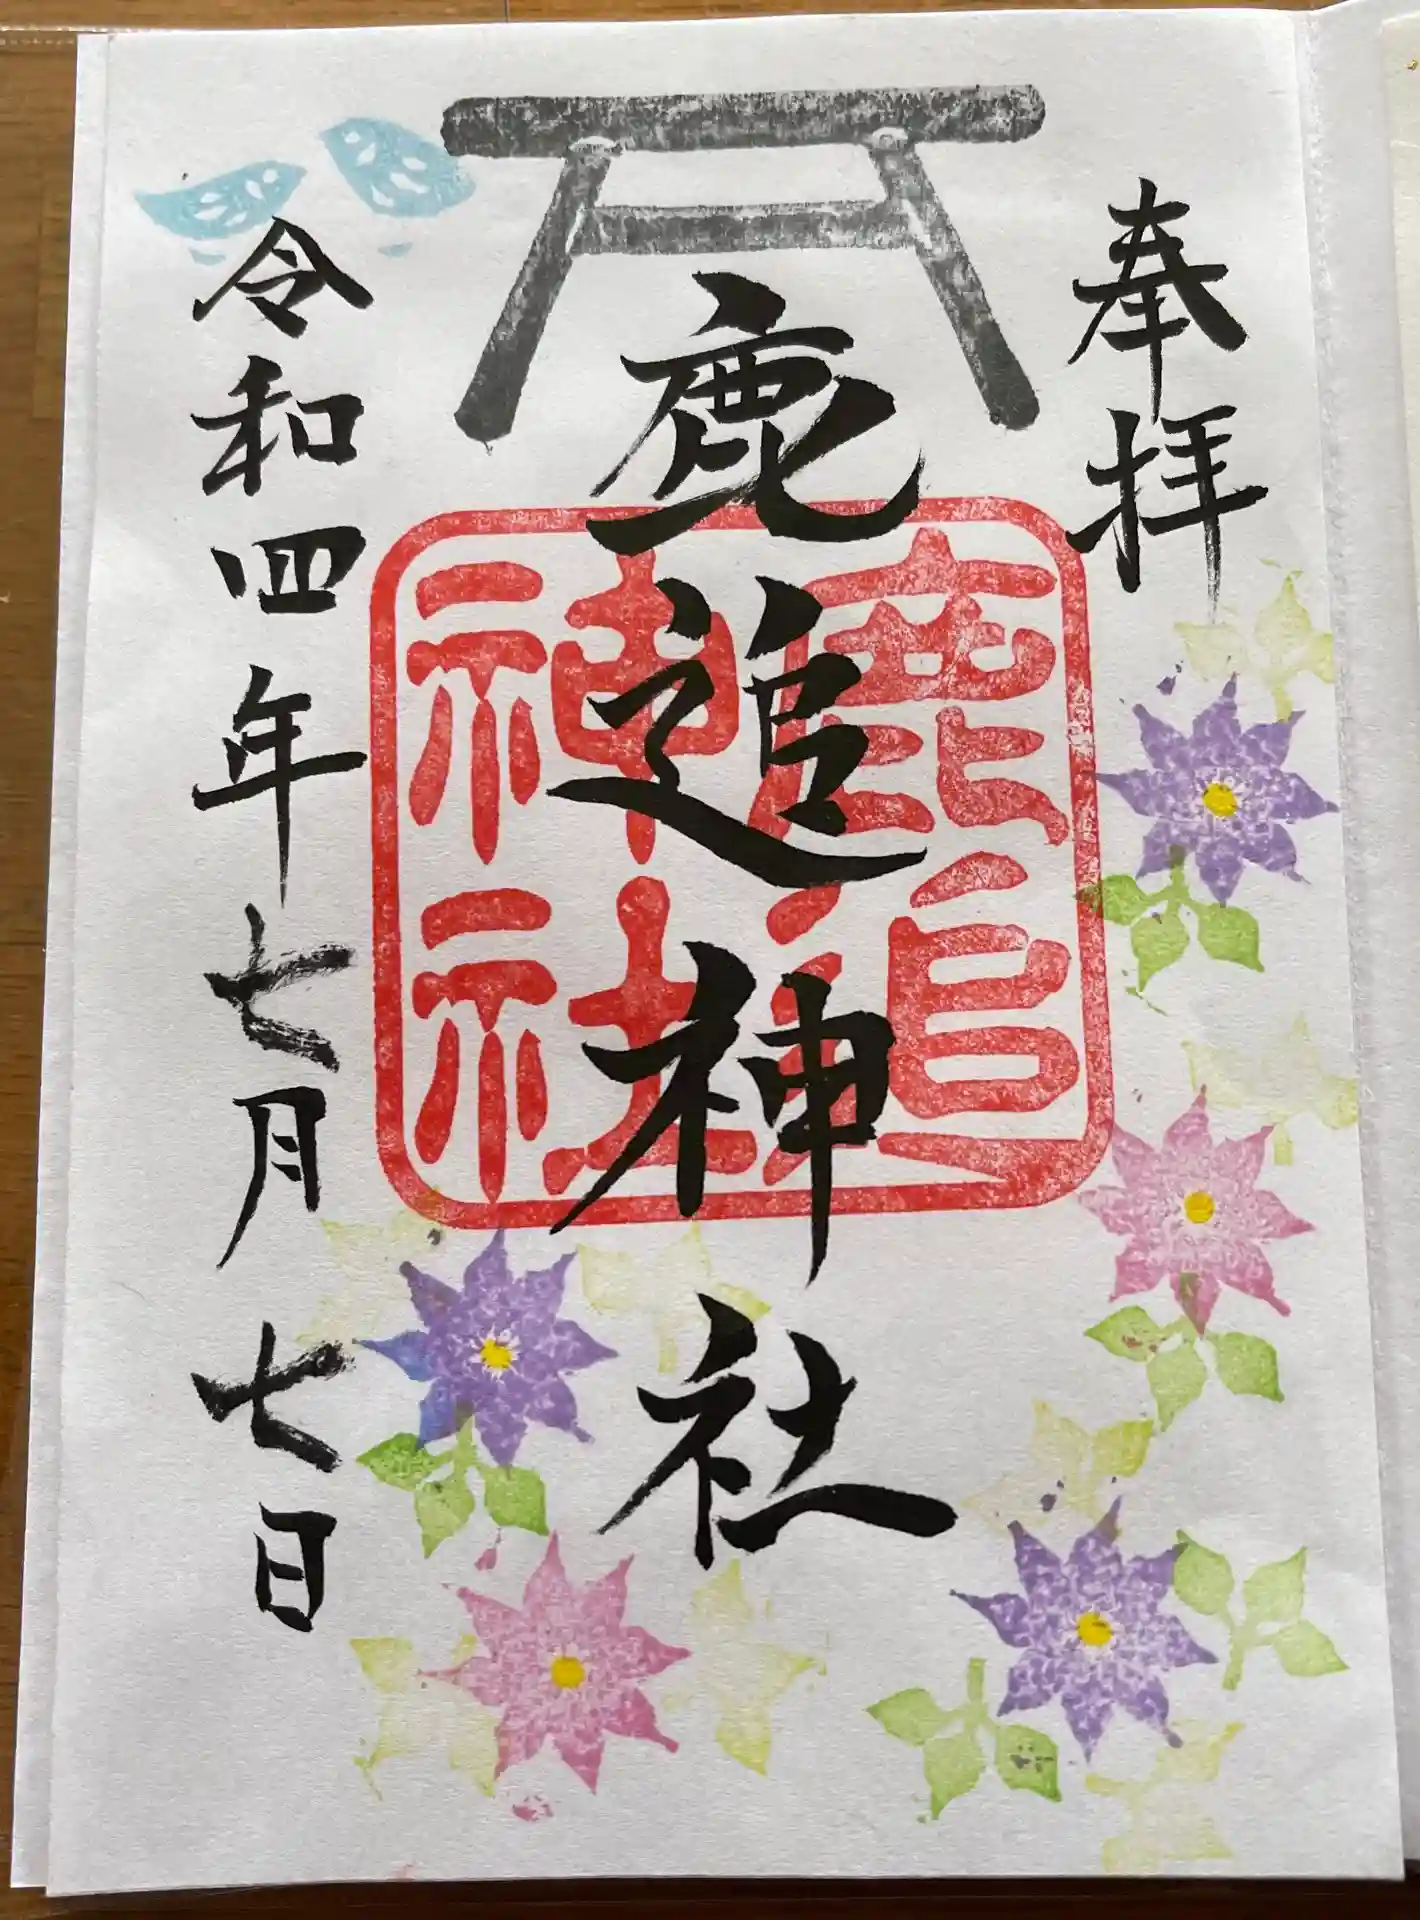 奉拝
鹿追神社
鹿追
神社
令和四年七月七日